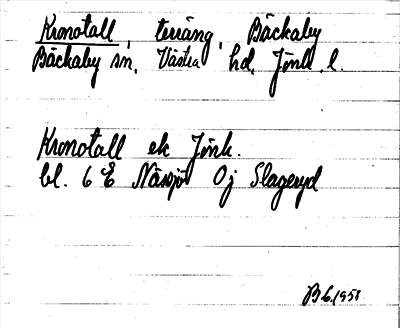 Kronotall, terräng, Bäckaby
Bäckaby sn, Västra hd, Jönk. l.
Kronotall ek Jönk.
bl. 6 E Nässjö Oj Slageryd
1951